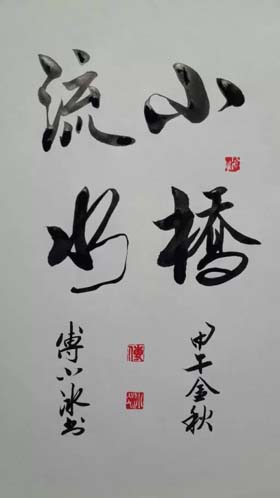 小橋
流水
甲午金秋
傅小冰书